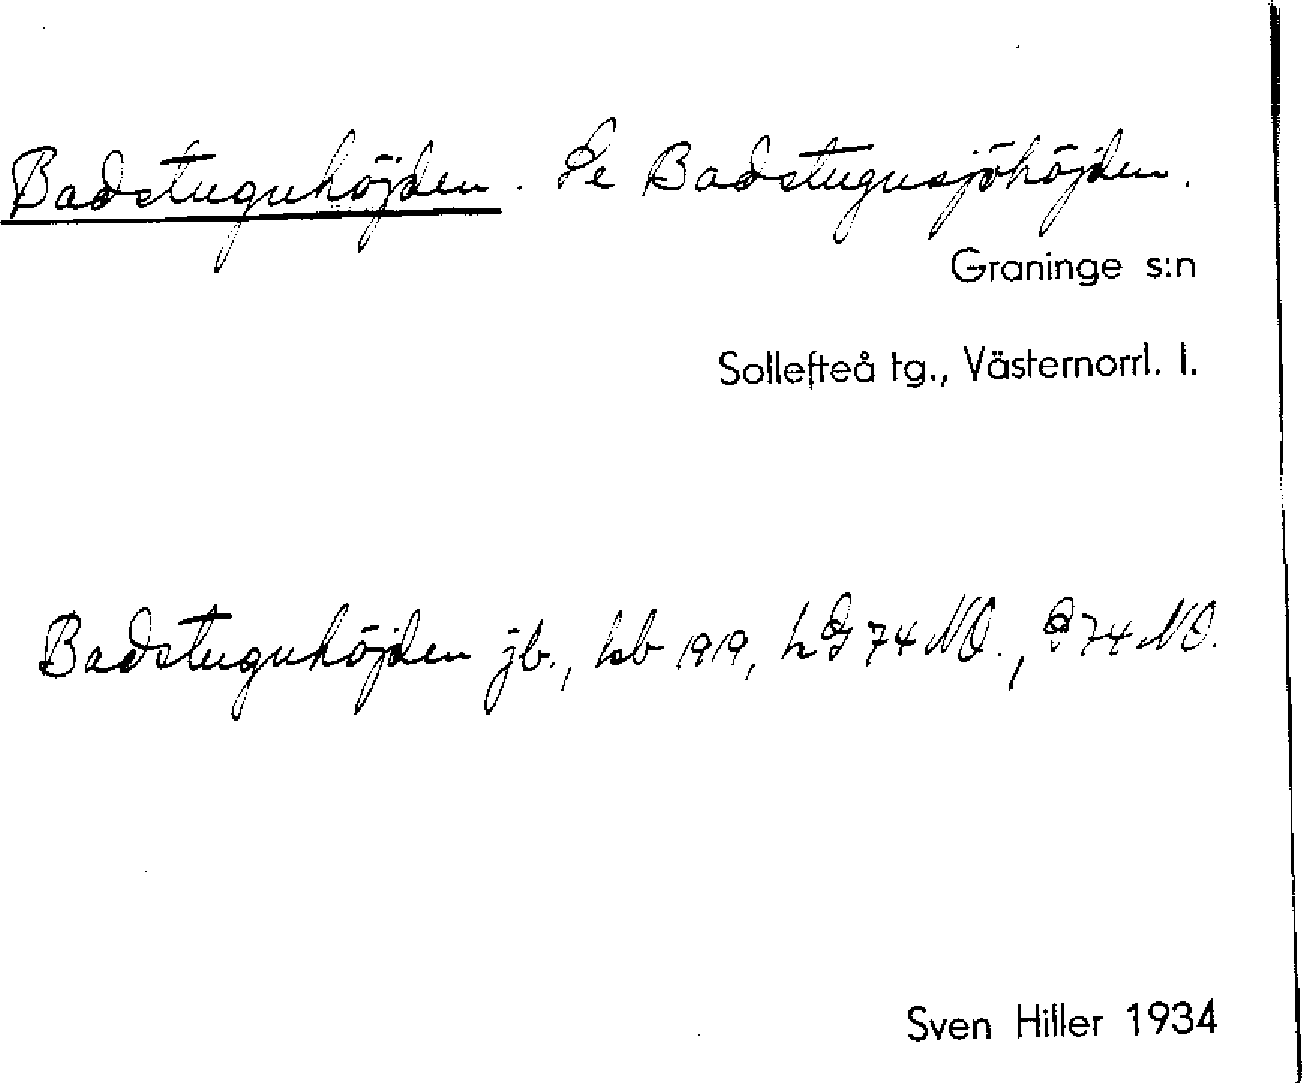 Badstuguhöjden. Se Badstugusjöhöjden.
Graninge s:n
Sollefteå tg., Västernorrl. l.
Badstuguhöjden jb., hb 1919, LG 74 NO., G 74 NO.
Sven Hiller 1934